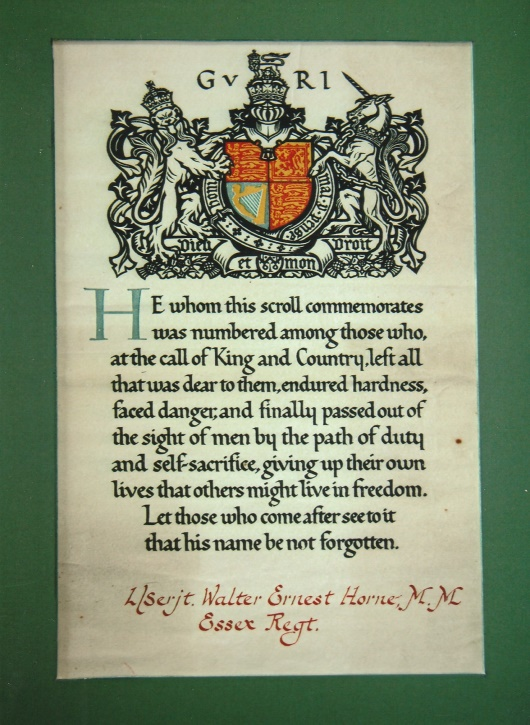 G V R I
Honi soit qui mal y pense
Dieu et mon Droit
HE whom this scroll commemorates
was numbered among those who,
at the call of King and Country, left all
that was dear to them, endured hardness,
faced danger, and finally passed out of
the sight of men by the path of duty
and self-sacrifice, giving up their own
lives that others might live in freedom.
Let those who come after see to it
that his name be not forgotten.
L/Serjt. Walter Ernest Horne, M.M
Essex Regt.